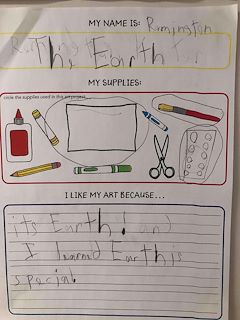 MY NAME IS: Remington
The Earth
MY SUPPLIES:
circle the supplies used in this art project
I LIKE MY ART BECAUSE...
its Earth! and
I learned Earth is
special